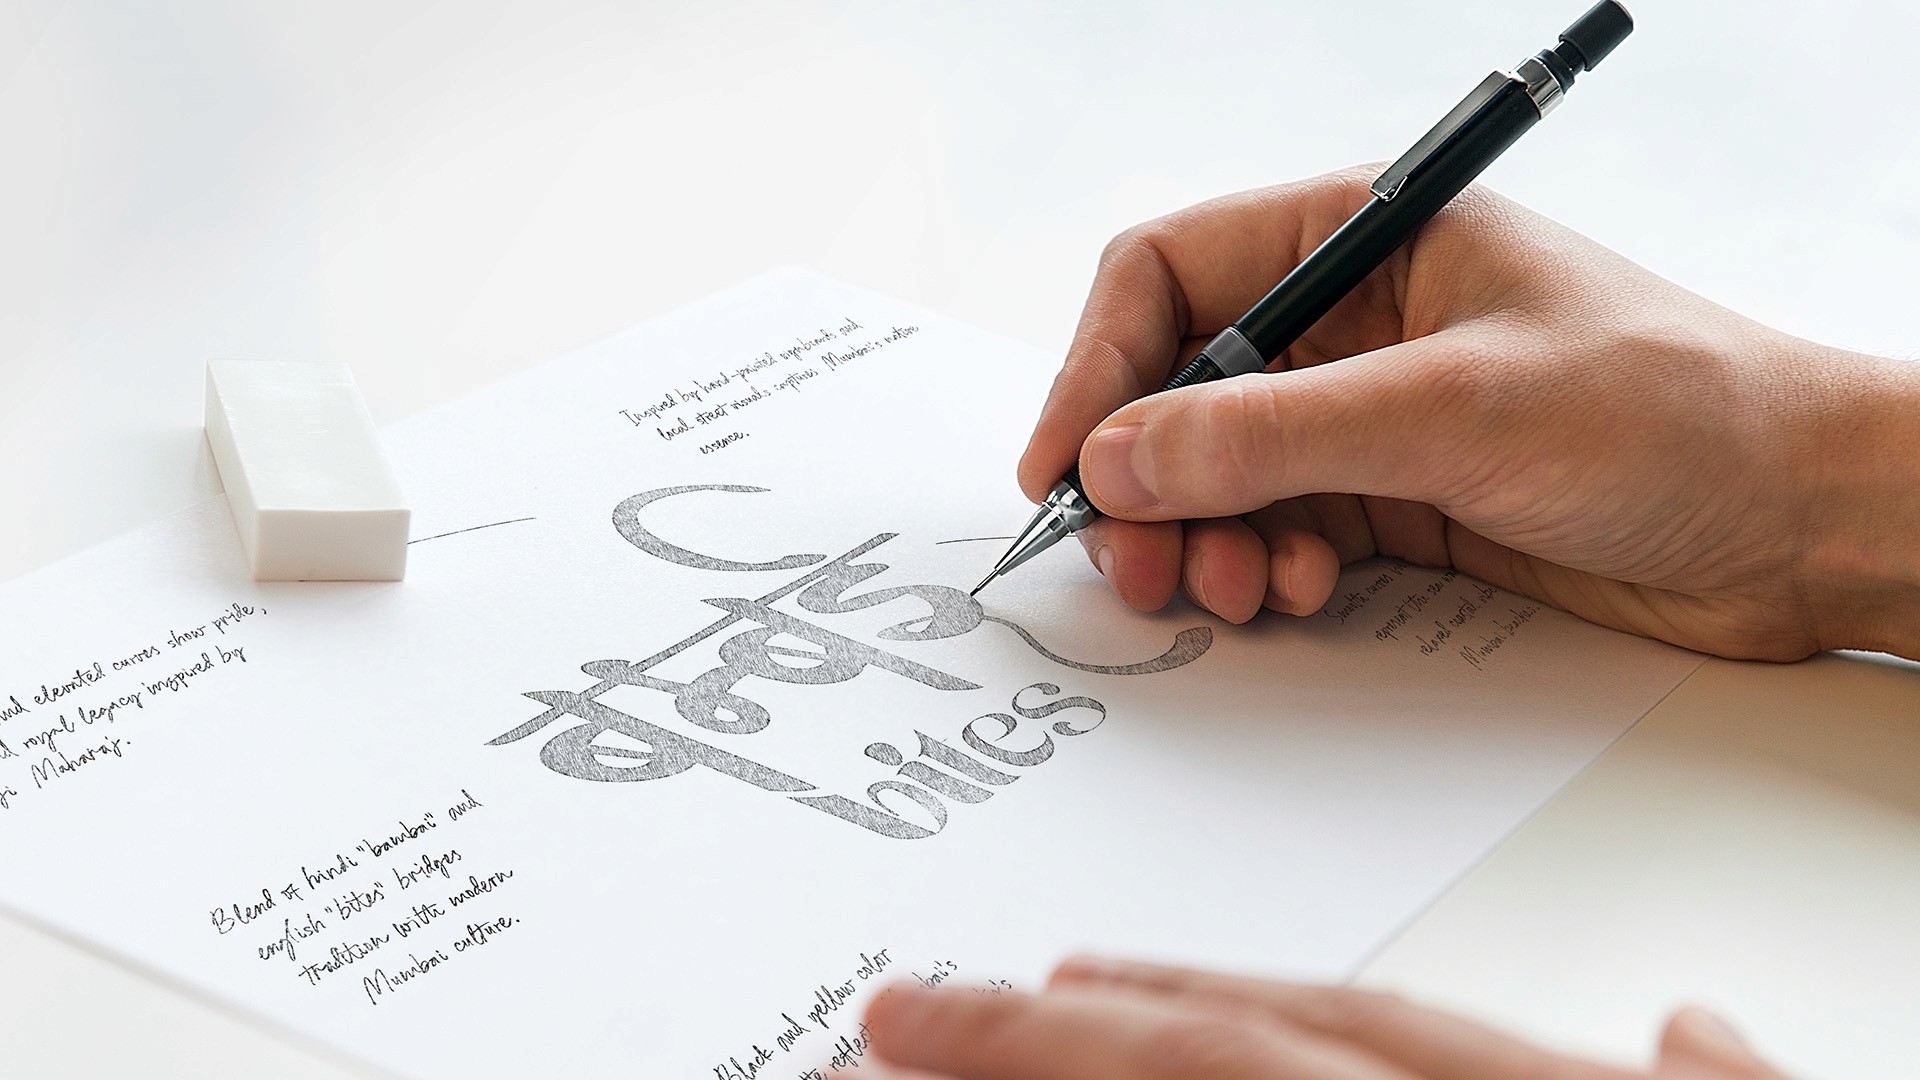 Inspired by hand-painted signboards and
local street visuals captures Mumbai's native
essence.
बम्बई
bites
and elevated curves show pride,
royal legacy inspired by
Maharaj.
Smooth curves
represent the sea
relaxed coastal
Mumbai beaches.
Blend of hindi "bambai" and
english "bites" bridges
tradition with modern
Mumbai culture.
Black and yellow color
reflect